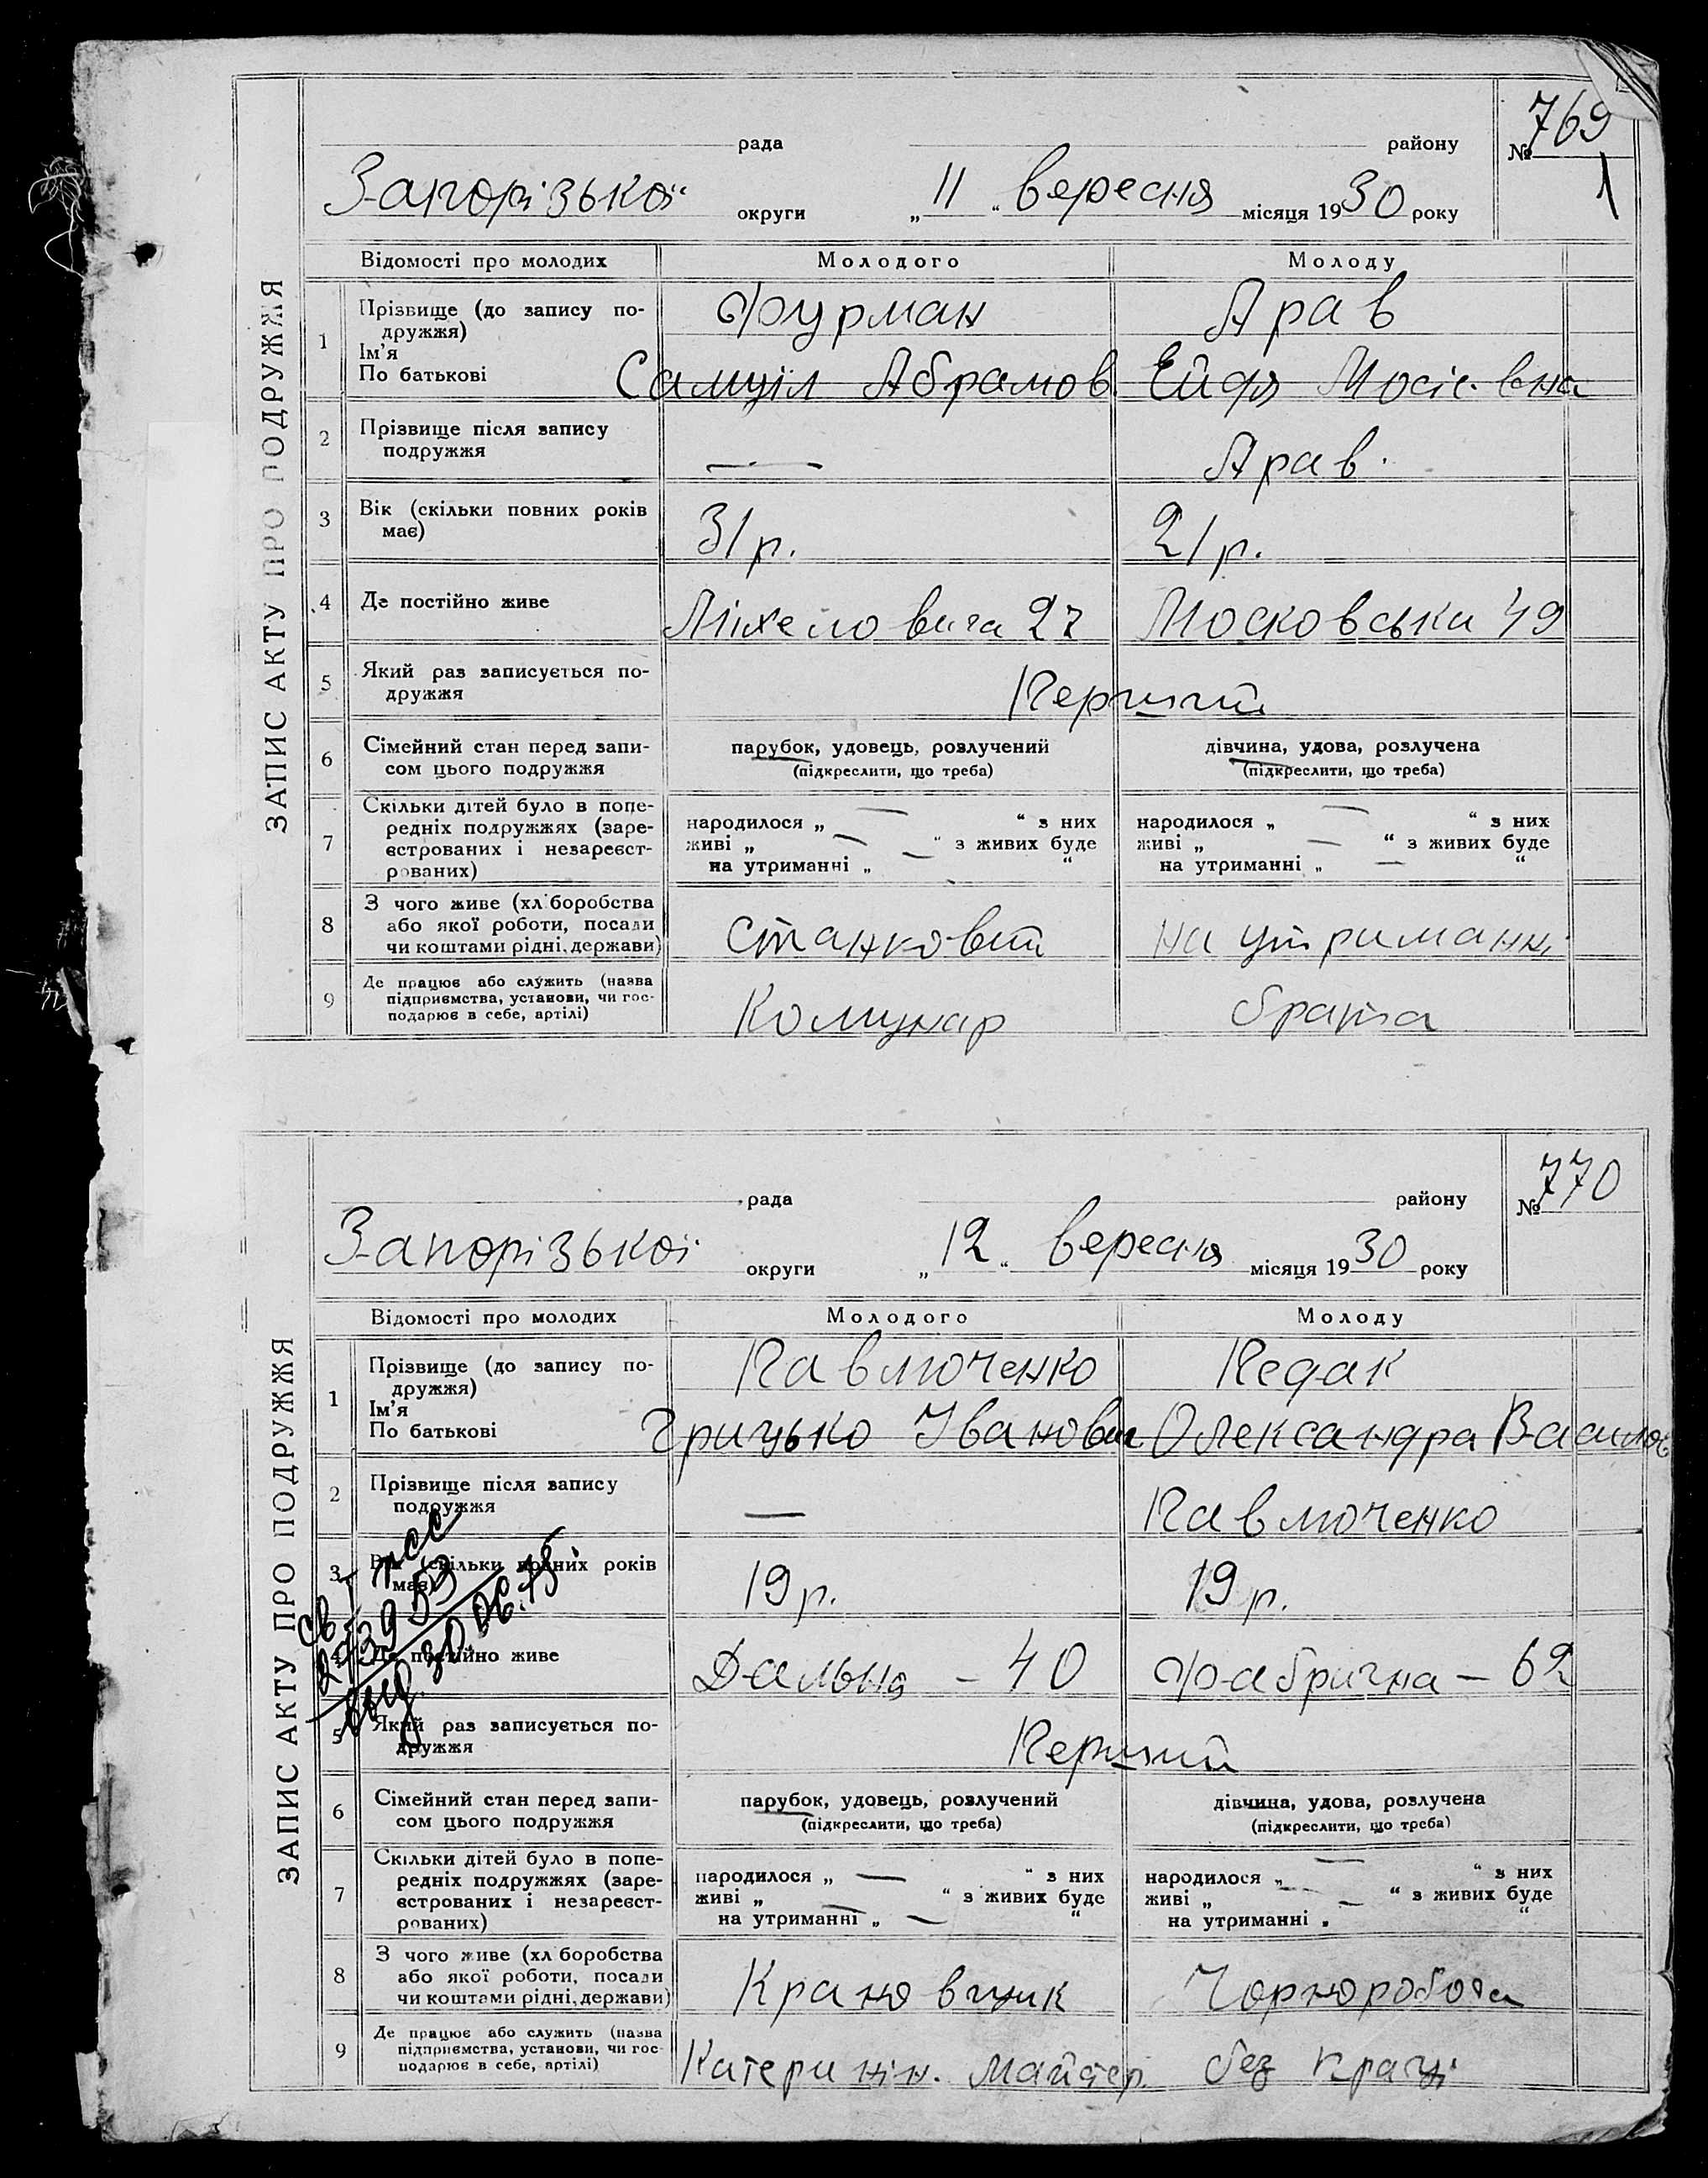 ЗАПИС АКТУ ПРО ПОДРУЖЖЯ
рада району № 769
1
Запорізької округи „11“ вересня місяця 1930 року
Відомості про молодих Молодого Молоду
1 Прізвище (до запису по-
дружжя)
Ім'я
По батькові
Фурман Арав
Самуіл Абрамов. Ейдя Мосіевна
2 Прізвище після запису
подружжя
— Арав.
3 Вік (скільки повних років
має)
31 р. 21 р.
4 Де постійно живе 27 Московська 49
5 Який раз записується по-
дружжя
Перший
6 Сімейний стан перед запи-
сом цього подружжя
парубок, удовець, розлучений
(підкреслити, що треба)
дівчина, удова, розлучена
(підкреслити, що треба)
7 Скільки дітей було в попе-
редніх подружжях (заре-
єстрованих і незареєст-
рованих)
народилося „ — “ з них
живі „ — “ з живих буде
на утриманні „ — “
народилося „ — “ з них
живі „ — “ з живих буде
на утриманні „ — “
8 З чого живе (хл боробства
або якої роботи, посади
чи коштами рідні, держави)
Станковий на утриманні
9 Де працює або служить (назва
підприємства, установи, чи гос-
подарює в себе, артілі)
Комунар брата
ЗАПИС АКТУ ПРО ПОДРУЖЖЯ
рада району № 770
Запорізької округи „12“ вересня місяця 1930 року
Відомості про молодих Молодого Молоду
1 Прізвище (до запису по-
дружжя)
Ім'я
По батькові
Павлюченко Редак
Грицько Іванович Олександра Василов
2 Прізвище після запису
подружжя
— Павлюченко
3 Вік (скільки повних років
має)
19 р. 19 р.
4 Де постійно живе Дальня – 40 Фабрична – 62
5 Який раз записується по-
дружжя
Перший
6 Сімейний стан перед запи-
сом цього подружжя
парубок, удовець, розлучений
(підкреслити, що треба)
дівчина, удова, розлучена
(підкреслити, що треба)
7 Скільки дітей було в попе-
редніх подружжях (заре-
єстрованих і незареєст-
рованих)
народилося „ — “ з них
живі „ — “ з живих буде
на утриманні „ — “
народилося „ — “ з них
живі „ — “ з живих буде
на утриманні „ “
8 З чого живе (хл боробства
або якої роботи, посади
чи коштами рідні, держави)
Крановщик Чорноробоча
9 Де працює або служить (назва
підприємства, установи, чи гос-
подарює в себе, артілі)
Катеринін. майстер. без праці
выд. 30.06.75